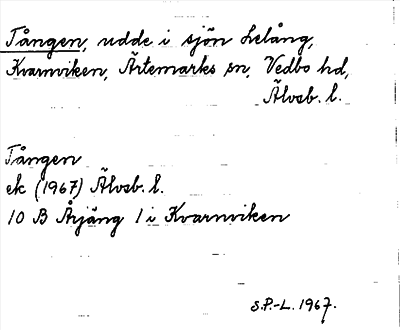 Tången, udde i sjön Lelång,
Kvarnviken, Ärtemarks sn, Vedbo hd,
Älvsb. l.
Tången
ek (1967) Älvsb. l.
10 B Årjäng 1 i Kvarnviken
S.P.-L. 1967.